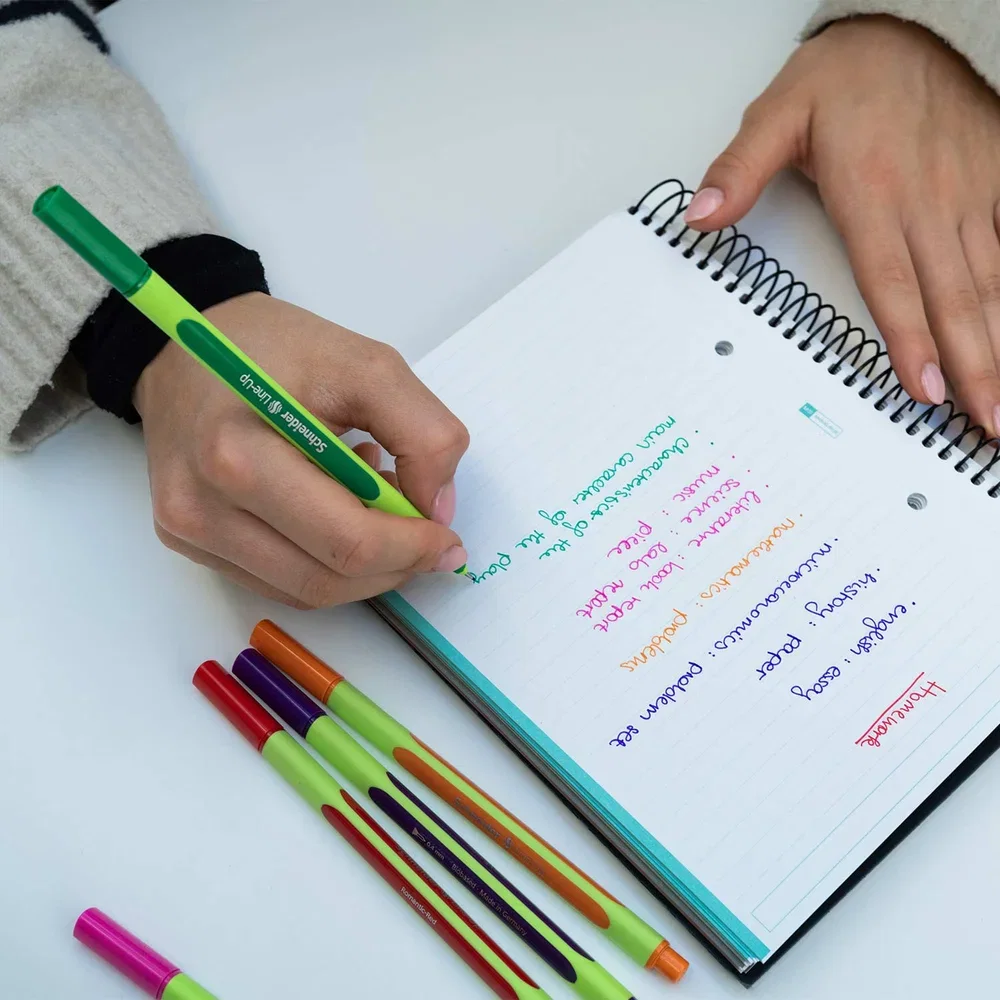 Homework
• english : essay
• history : paper
• microeconomics : problem set
• mathematics : problems
• literature : book report
• science : lab report
• music : piece
• characteristics of the
main caracters of the play
Schneider Line-Up
0.4 mm Biobased · Made in Germany
Romantic-Red